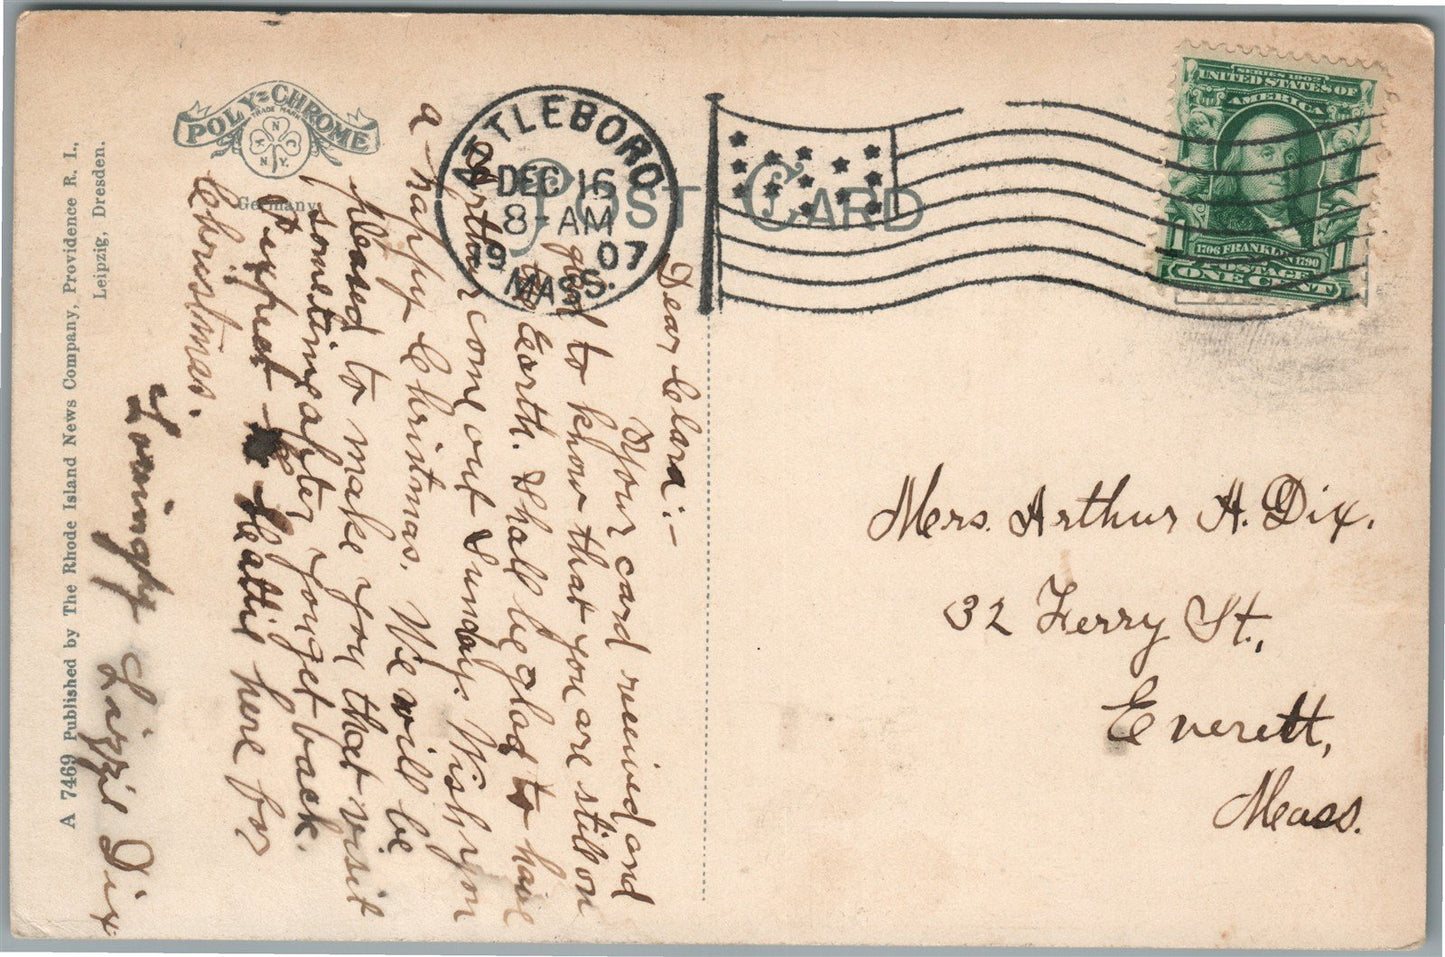 POLY-CHROME
TRADE MARK
N
A C
N.Y.
Germany
POST CARD
ATTLEBORO
DEC 16
8-AM
1907
MASS.
SERIES 1902
UNITED STATES OF
AMERICA
1706 FRANKLIN 1790
POSTAGE
1 1
ONE CENT
Dear Clara:-
Your card received and
glad to know that you are still on
Earth. Shall be glad to have
Arthur come out Sunday. Wish you
a happy Christmas. We will be
pleased to make you that visit
sometime after you get back.
I expect to be Hattie here for
Christmas.
Lovingly
Lizzie Dix
Mrs. Arthur A. Dix.
32 Ferry St.,
Everett,
Mass.
A 7469 Published by The Rhode Island News Company, Providence R. I.,
Leipzig, Dresden.